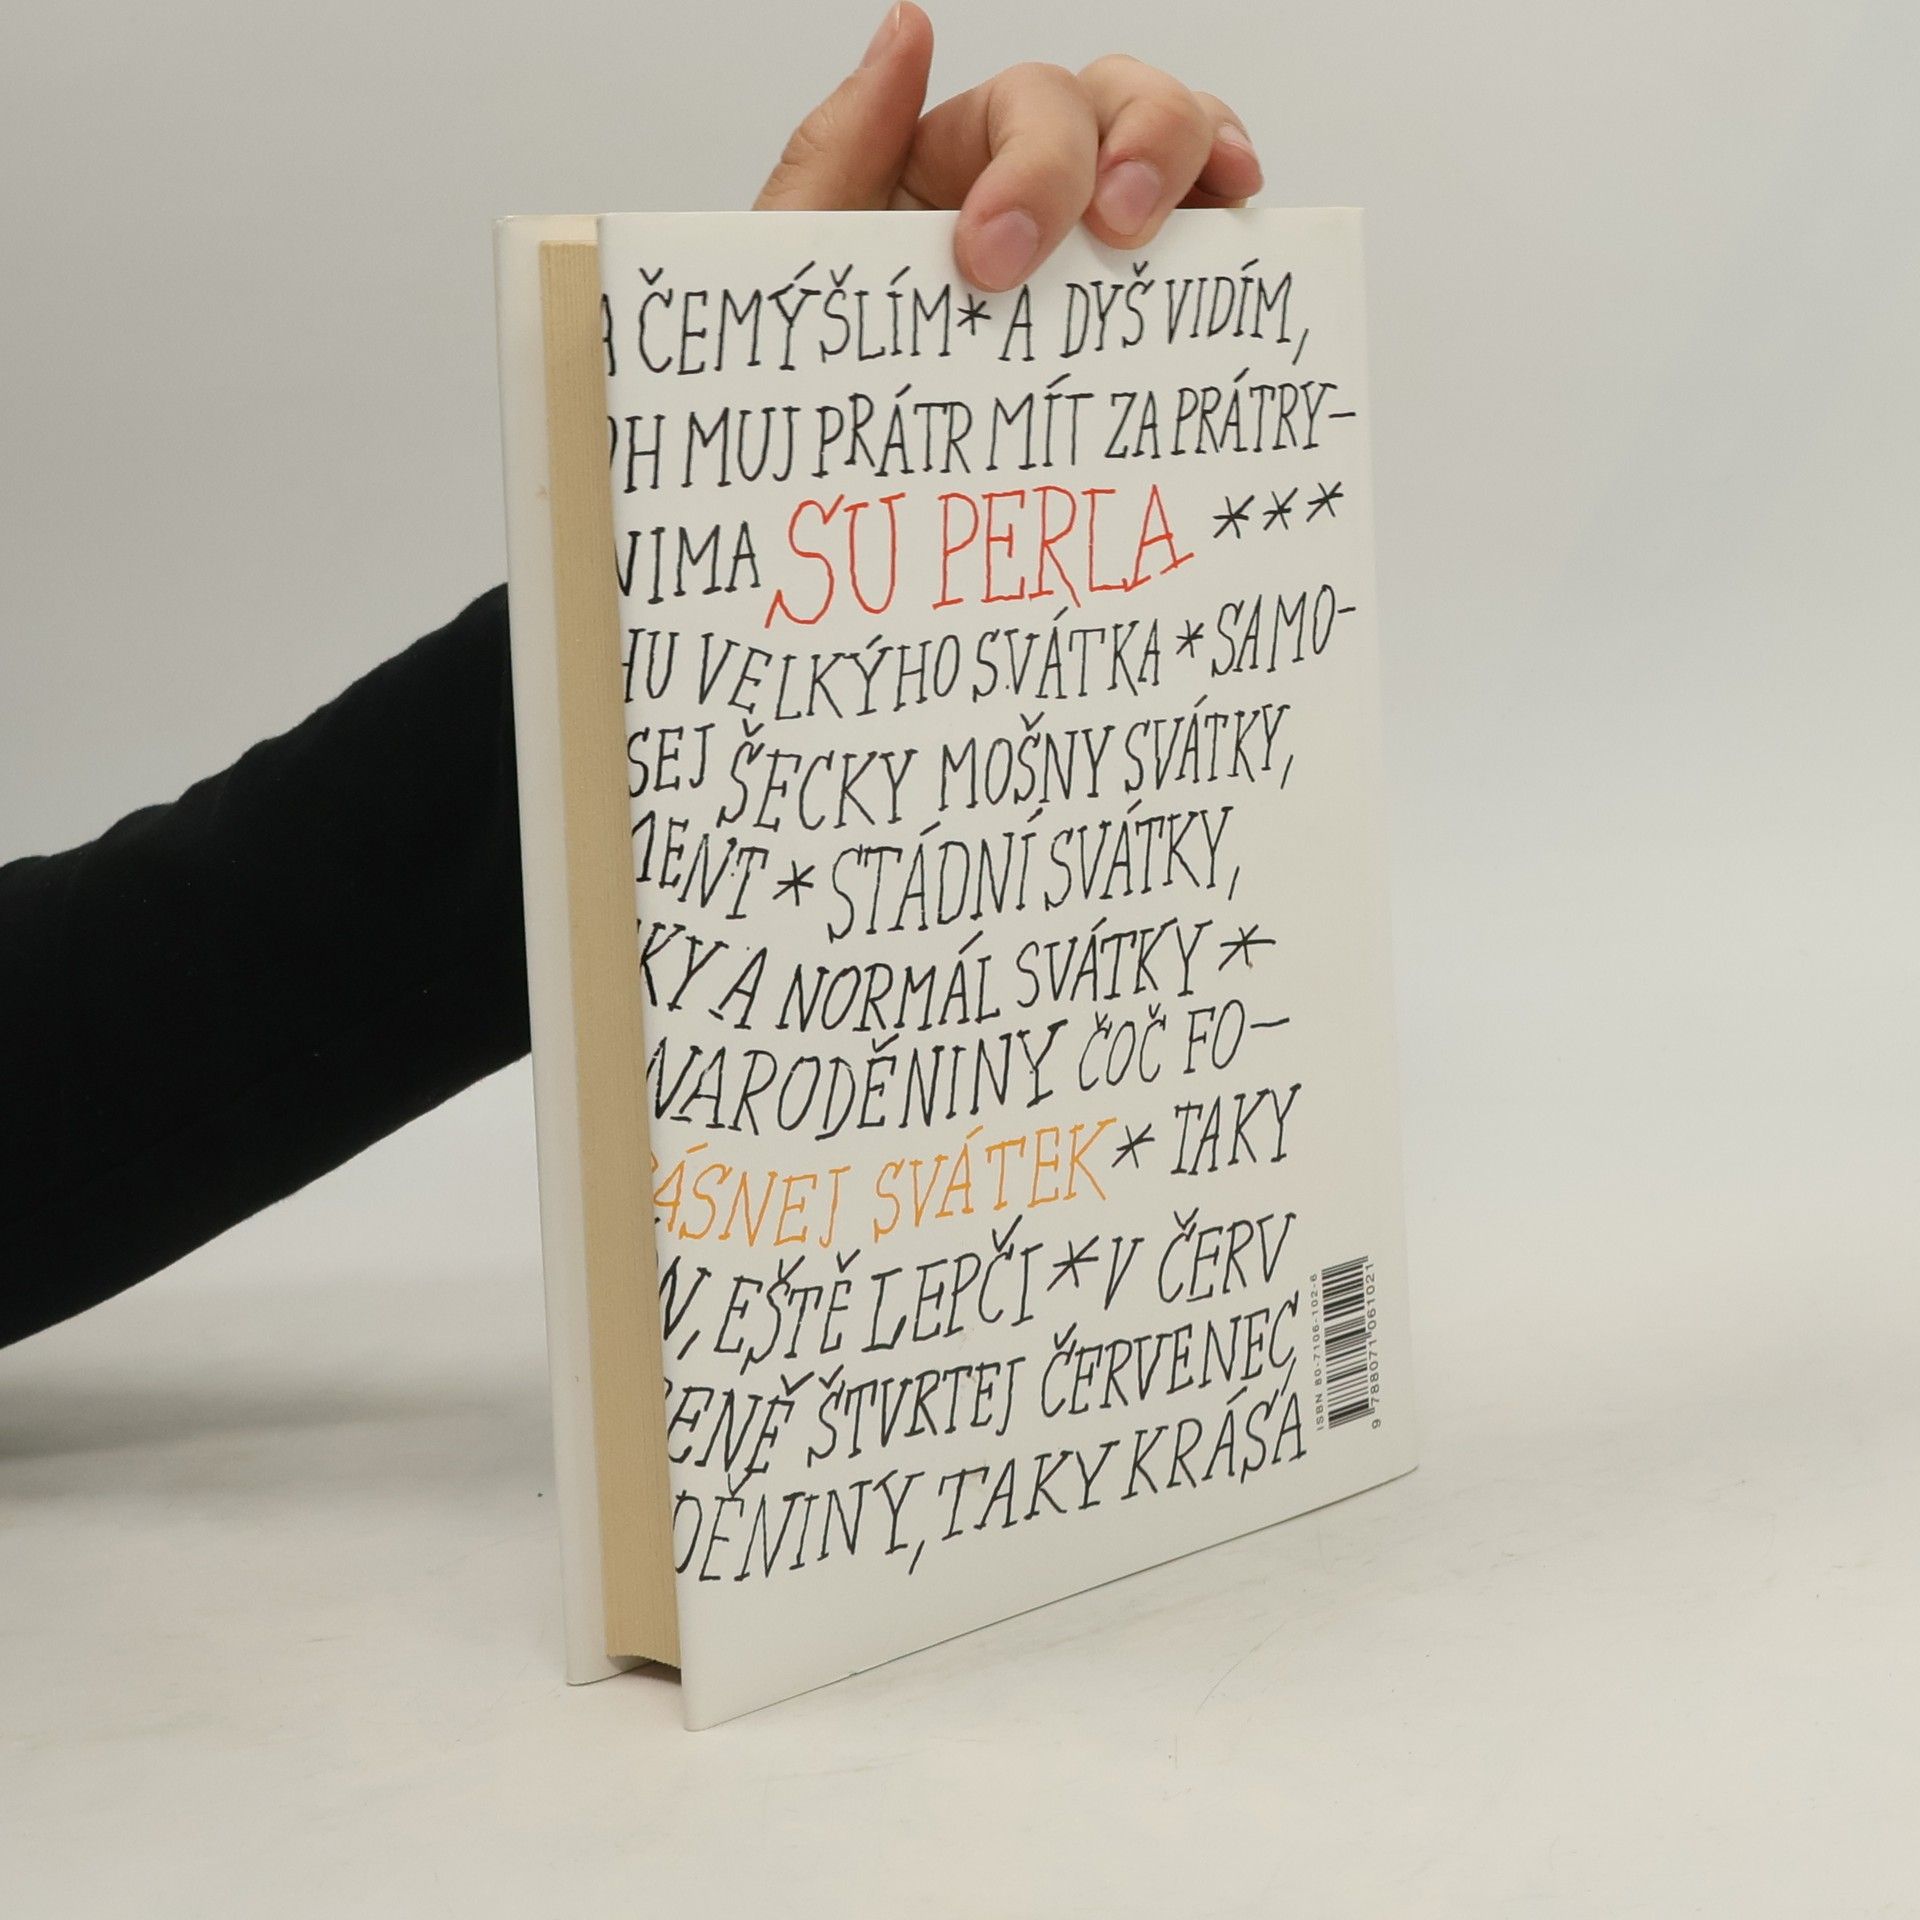 A ČEMÝŠLÍM * A DYŠ VIDÍM,
H MUJ PRÁTR MÍT ZA PRÁTRY–
VIMA SU PERLA ***
HU VELKÝHO SVÁTKA * SAMO-
SEJ ŠECKY MOŠNY SVÁTKY,
MENT * STÁDNÍ SVÁTKY,
KY A NORMÁL SVÁTKY *
NARODĚNINY ČOČ FO–
ÁSNEJ SVÁTEK * TAKY
N, EŠTĚ LEPČI * V ČERV
ENĚ ŠTVRTEJ ČERVENEC,
DĚNINY, TAKY KRÁSA
ISBN 80-7106-102-6
9 788071 061021